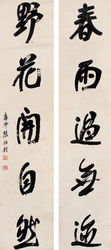 春雨過無迹
野花開自然